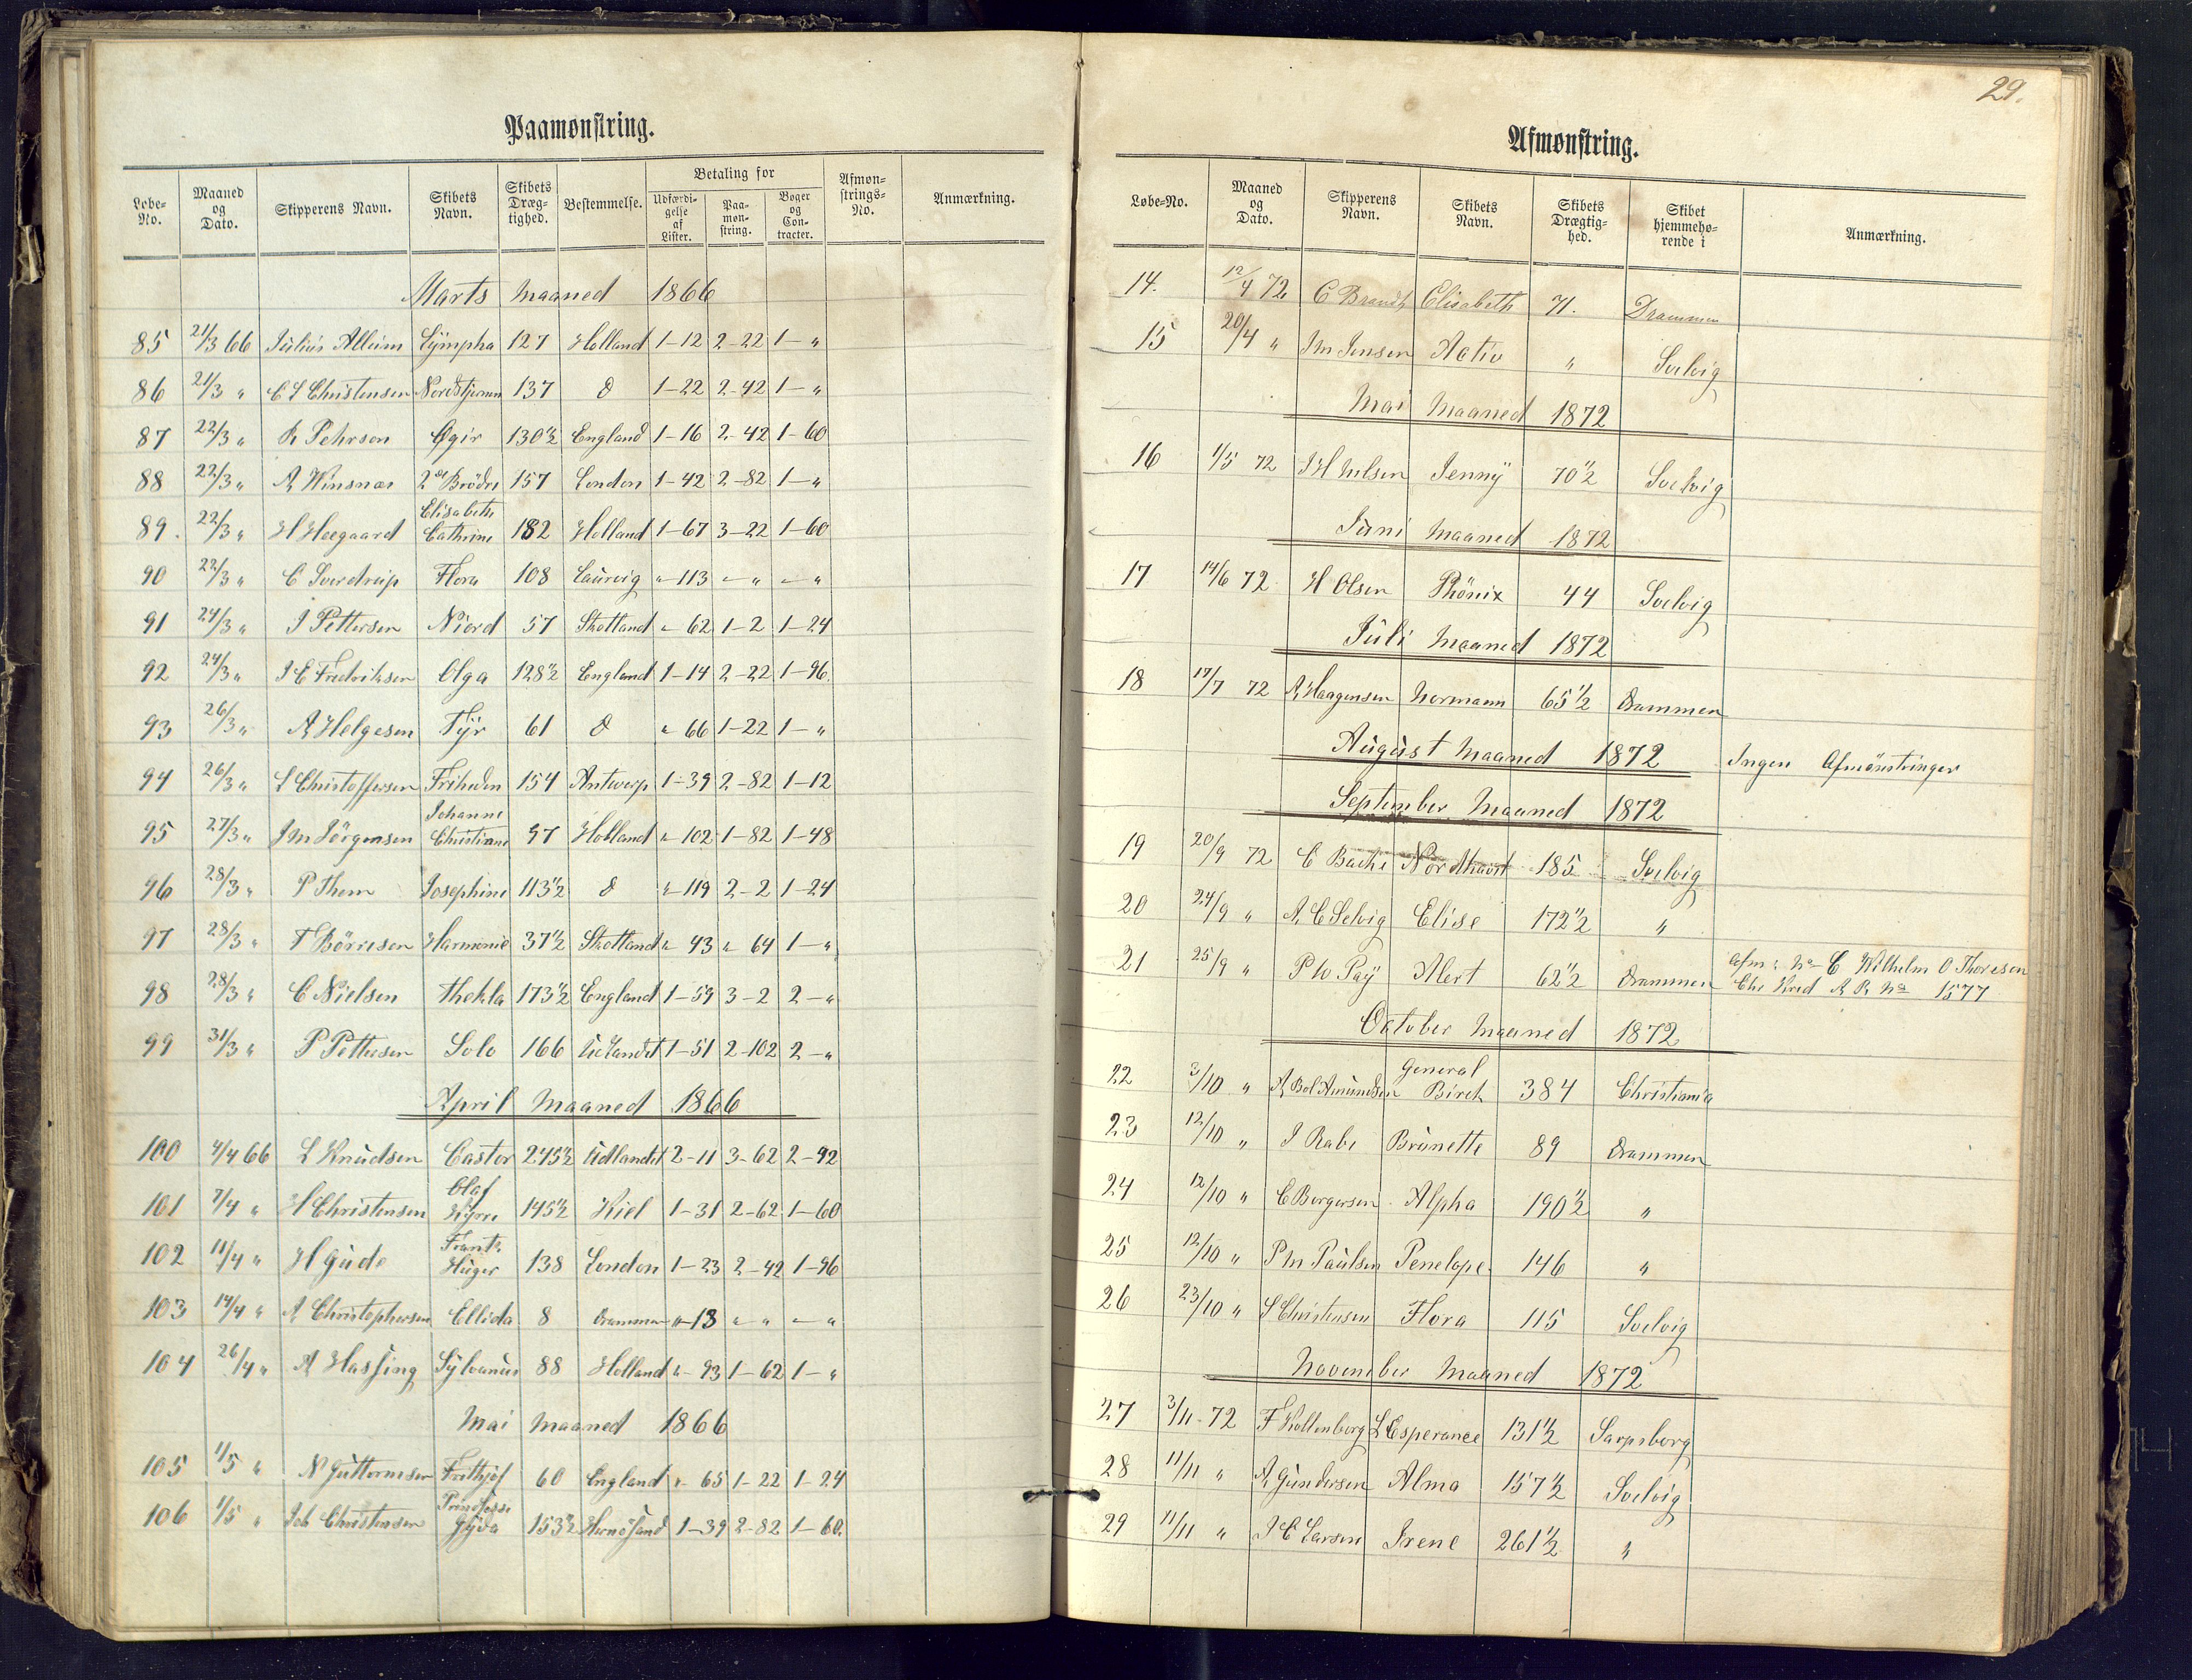 Paamønstring.
Løbe-No. Maaned og Dato. Skipperens Navn. Skibets Navn. Skibets Dræg-tighed. Bestemmelse. Betaling for Udfærdi-gelse af Lister. Paa-møn-string. Bøger og Con-tracter. Afmøn-strings-No. Anmærkning.
Marts Maaned 1866
85 21/3 66 Julius Lympha 127 Holland 1-12 2-22 1- "
86 21/3 " C L Christensen Nordstjernen 137 d 1-22 2-42 1- "
87 22/3 " R Pehrson Øgir 130 1/2 England 1-16 2-42 1-60
88 22/3 " A Winsnæs 2de Brödre 157 London 1-42 2-82 1- "
89. 22/3 " H Heegaard Elisabeth Cathrine 182 Holland 1-67 3-22 1-60
90 22/3 " C Sverdrup Flora 108 Laurvig "-113 - " - "
91 24/3 " J Pettersen Niord 57 Skotland "-62 1-2 1-24
92 24/3 " J E Fredriksen Olga 128 1/2 England 1-14 2-22 1-96.
93 26/3 " A Helgesen Tÿr 61 d " 66 1-22 1- "
94 26/3 " L Christoffersen Friheden 154 Antwerp 1-39 2-82 1-12
95 27/3 " J M Jörgensen Johanne Christiane 97 Holland "-102 1-82 1-48
96 28/3 " P Them Josephine 113 1/2 d "-119 2-2 1-24
97 28/3 " T Börresen Harmonie 37 1/2 Skotland " 43 " 64 1- "
98 28/3 " C Nielsen Thekla 173 1/2 England 1-59 3-2 2- "
99 31/3 " P Pettersen Solo 166 Udlandet 1-51 2-102 2- "
April Maaned 1866
100 4/4 66 L Knudsen Castor 245 1/2 Udlandet 2-11 3-62 2-92
101 7/4 " H Christensen Olaf Kyrre 145 1/2 Kiel 1-31 2-62 1-60
102 11/4 " H Gude Frantz Huger 138 London 1-23 2-42 1-96
103 14/4 " A Christophersen Ellida 8 Drammen "-13 " " - "
104 26/4 " A Hassing Sylvanus 88 Holland "-93 1-62 1- "
Mai Maaned 1866
105 1/5 " N Guttormsen Frithjof 60 England "-65 1-22 1-24
106 1/5 " Job Christensen Prindsesse Gyda 153 1/2 Hernösand 1-39 2-82 1-60.
29.
Afmønstring.
Løbe-No. Maaned og Dato. Skipperens Navn. Skibets Navn. Skibets Drægtig-hed. Skibet hjemmehø-rende i Anmærkning.
14. 12/4 72 C Brandt Elisabeth 71. Drammen
15 20/4 " J M Jensen Activ " Svelvig
Mai Maaned 1872
16 1/5 72 J H Nelsen Jenny 70 1/2 Svelvig
Juni Maaned 1872
17 14/6 72 H Olsen Phönix 44 Svelvig
Juli Maaned 1872
18 17/7 72 A Haagensen Normann 65 1/2 Drammen
August Maaned 1872 Ingen Afmönstringer
September Maaned 1872
19 20/9 72 C Bache Nordhavet 185 Svelvig
20 24/9 " A C Selvig Elise 172 1/2 "
21 25/9 " P W Paÿ Alert 62 1/2 Drammen Afm: No C Wilhelm O Thoresen
Chr Kred A R No 1577
October Maaned 1872
22 3/10 " A Bol Amundsen General Birch 384 Christiania
23 12/10 " J Rabe Brunette 89 Drammen
24 12/10 " C Borgersen Alpha 190 1/2 "
25 12/10 " P M Paulsen Penelope 146 "
26 23/10 " S Christensen Flora 115 Svelvig
November Maaned 1872
27 3/11 72 F Kollenborg L'Esperance 131 1/2 Sarpsborg
28 11/11 " A Gundersen Alma 157 1/2 Svelvig
29 11/11 " J C Larsen Irene 261 1/2 "